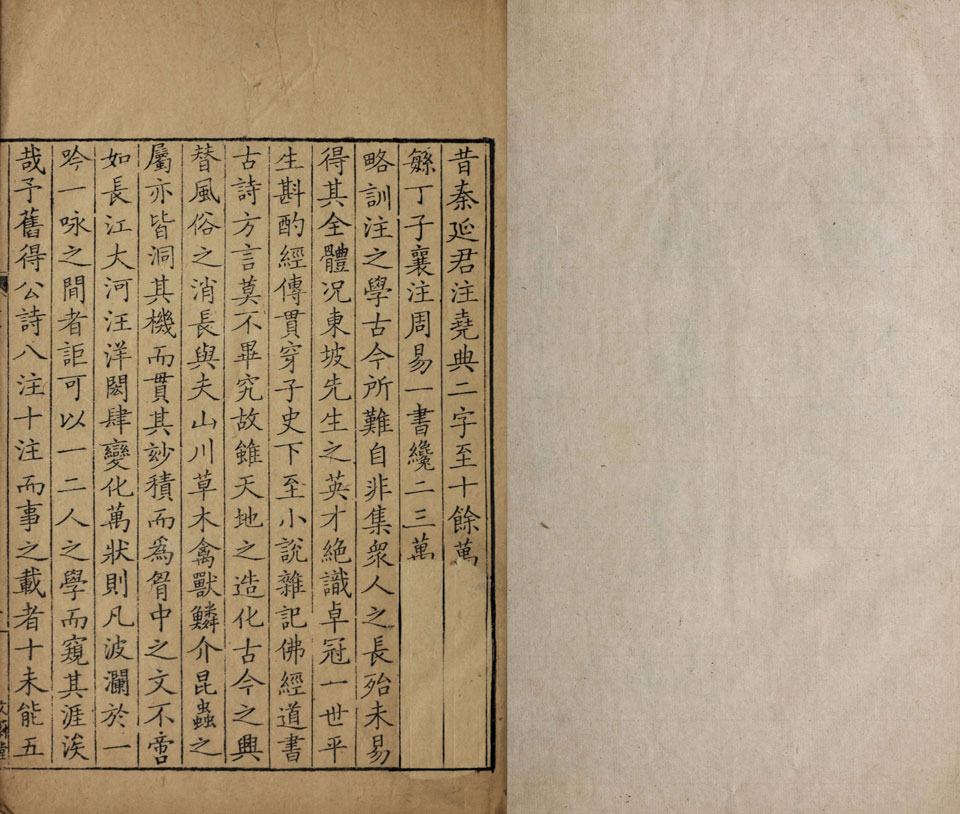 昔秦延君注堯典二字至十餘萬
繇丁子襄注周易一書纔二三萬
略訓注之學古今所難自非集衆人之長殆未易
得其全體況東坡先生之英才絶識卓冠一世平
生斟酌經傳貫穿子史下至小說雜記佛經道書
古詩方言莫不畢究故雖天地之造化古今之興
替風俗之消長與夫山川草木禽獸鱗介昆蟲之
屬亦皆洞其機而貫其玅積而爲胷中之文不啻
如長江大河汪洋閎肆變化萬狀則凡波瀾於一
吟一咏之間者詎可以一二人之學而窺其涯涘
哉予舊得公詩八注十注而事之載者十未能五